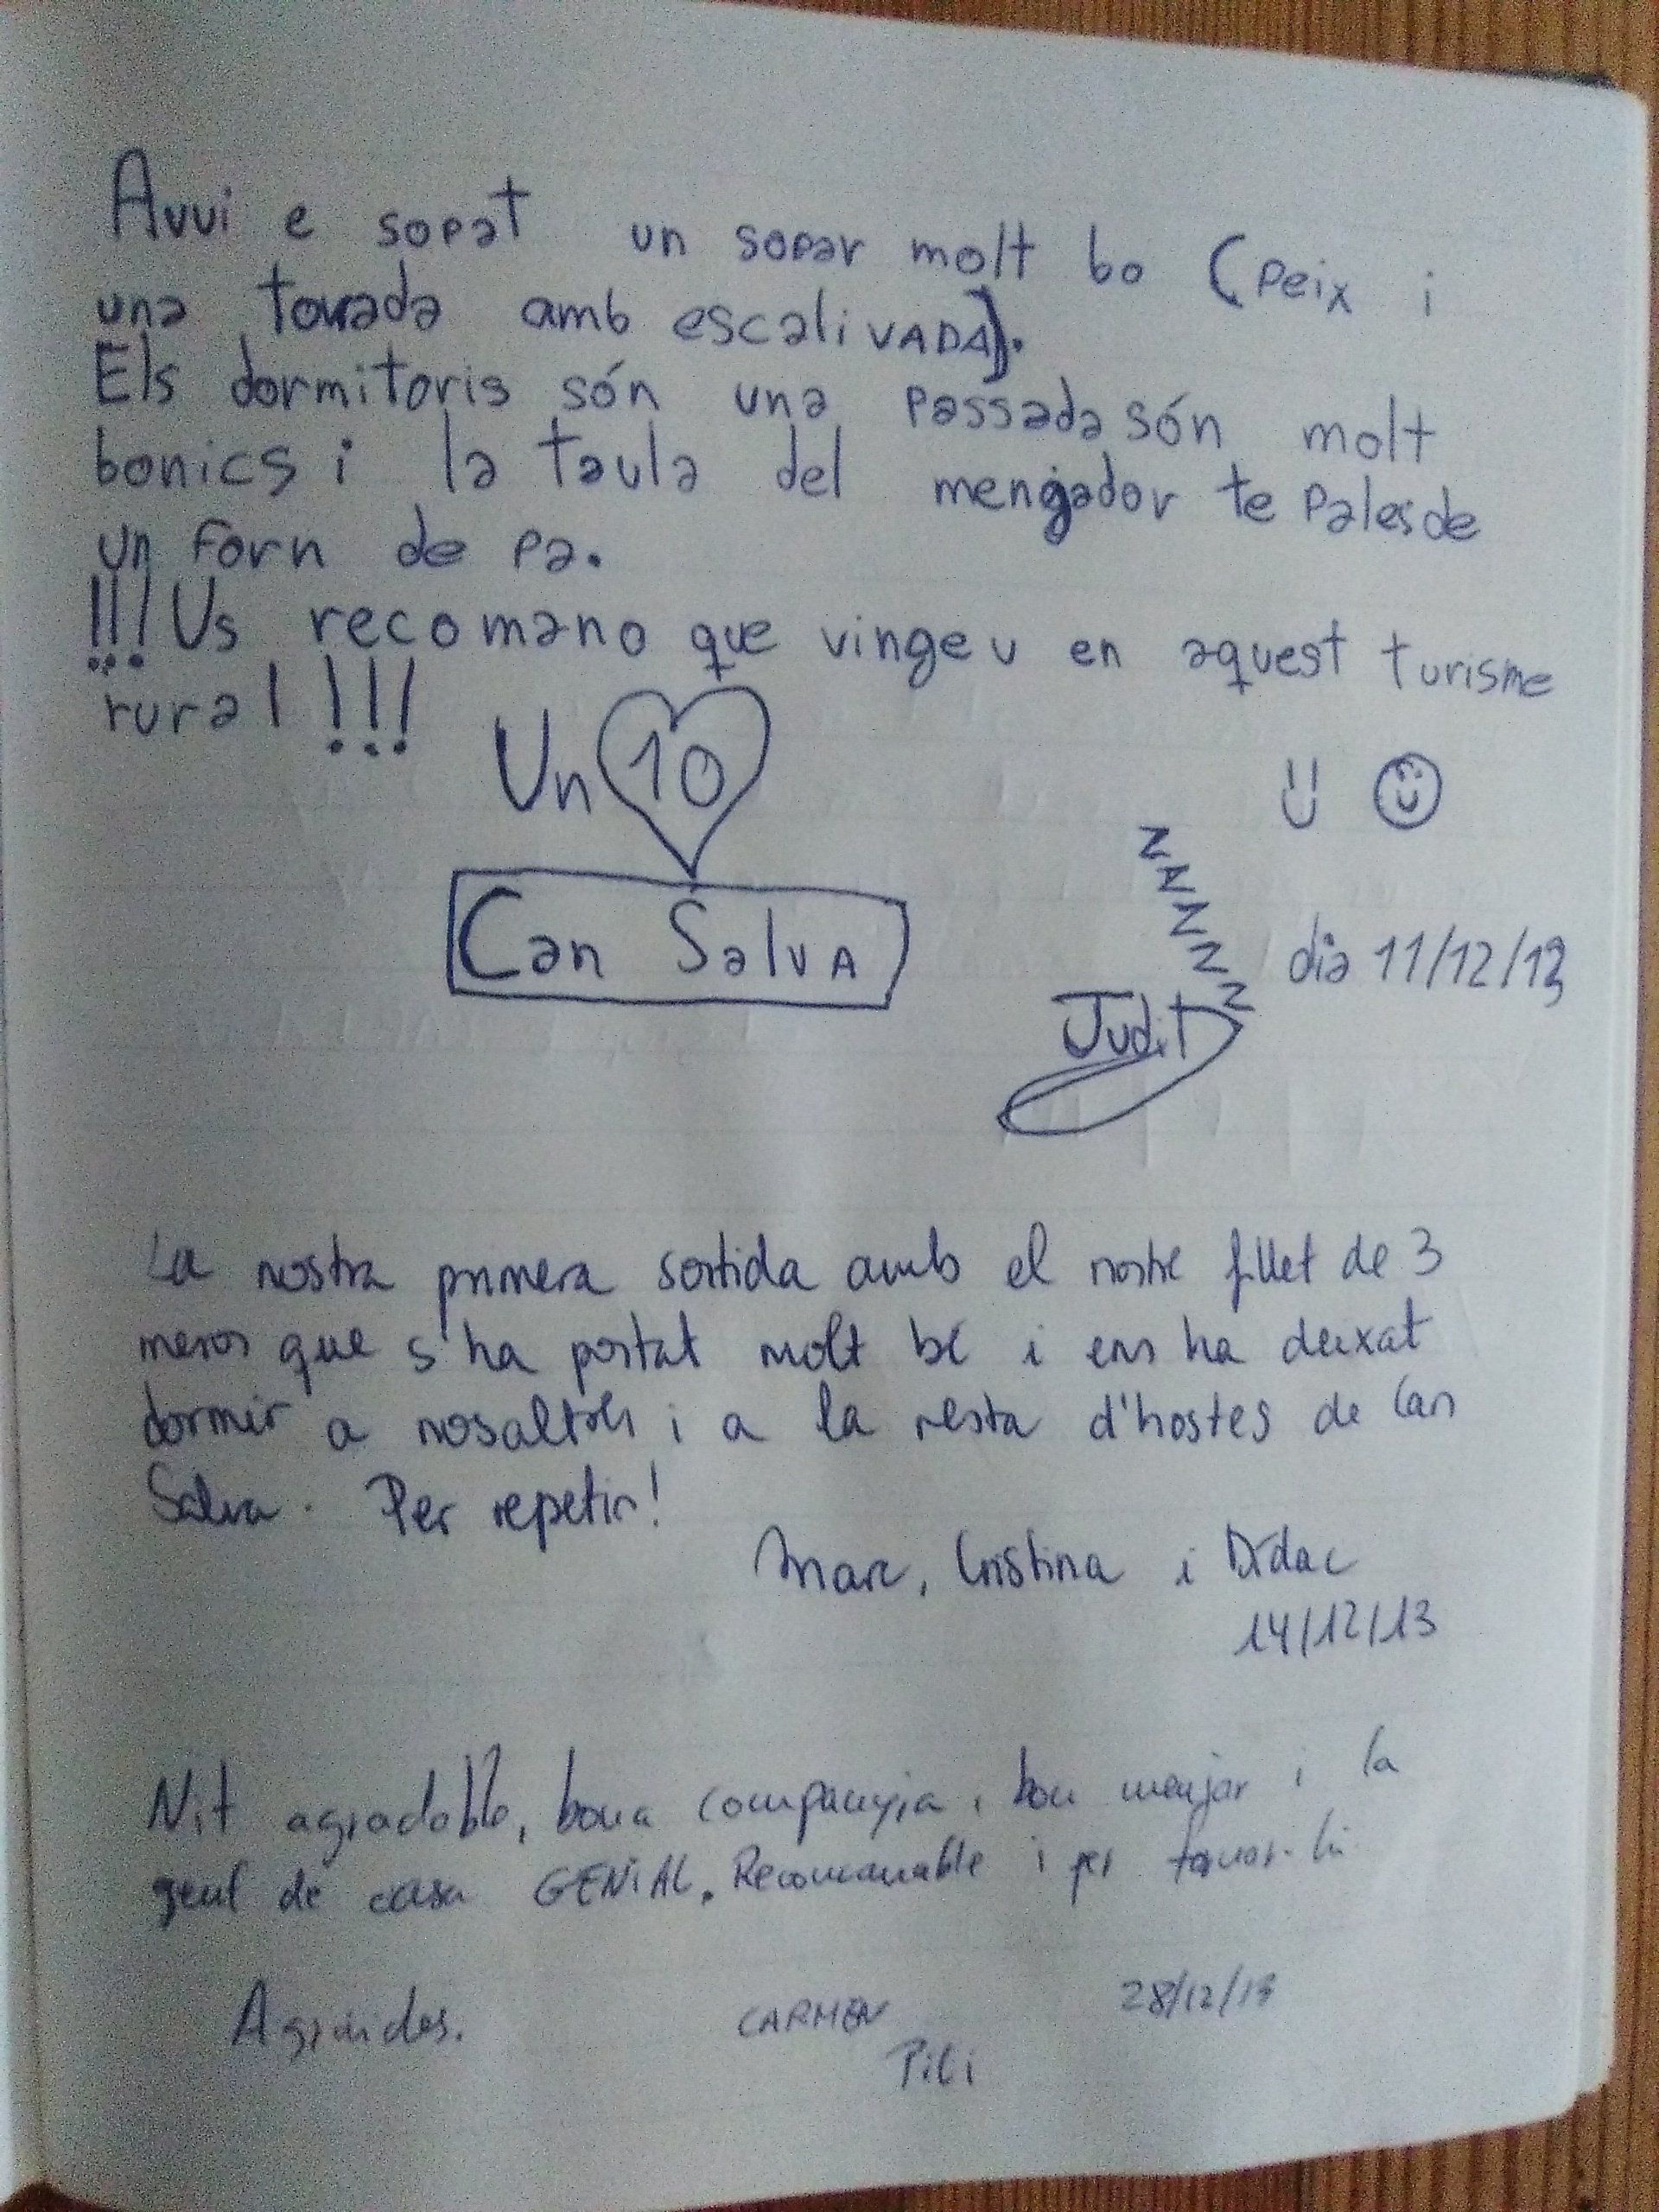 Avui e sopat un sopar molt bo (peix i
una torrada amb escaliVADA).
Els dormitoris són una passada són molt
bonics i la taula del mengador te pales de
un forn de pa.
!!!Us recomano que vingeu en aquest turisme
rural!!!
Un 10
Can Salva
dia 11/12/13
Judit
La nostra primera sortida amb el nostre fillet de 3
mesos que s'ha portat molt bé i ens ha deixat
dormir a nosaltres i a la resta d'hostes de Can
Salva. Per repetir!
Marc, Cristina i Dídac
14/12/13
Nit agradable, bona companyia, bon menjar i la
gent de casa GENIAL. Recomanable i per tornar-hi
Agraides.
CARMEN
28/12/13
Pili